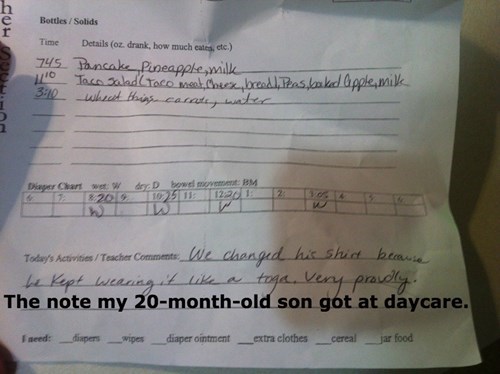 her Section
Bottles / Solids
Time Details (oz. drank, how much eaten, etc.)
745 Pancake, Pineapple, milk
1110 Taco Salad (Taco meat, Cheese, bread), Peas, baked Apple, milk
3:10 wheat thins, carrots, water
Diaper Chart wet: W dry: D bowel movement: BM
6: 7: 8:20 9: 10:25 11: 12:20 1: 2: 3:05 4: 5: 6:
W W W W
Today's Activities / Teacher Comments: We changed his shirt because
he kept wearing it like a toga. Very proudly.
The note my 20-month-old son got at daycare.
I need: __diapers __wipes __diaper ointment __extra clothes __cereal __jar food